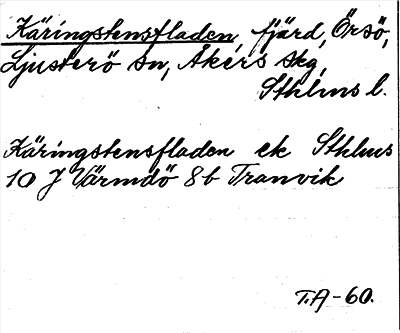 Käringstensfladen, fjärd, Örsö,
Ljusterö sn, Åkers skg
Sthlms l.
Käringstensfladen ek Sthlms
10 J Värmdö 8b Tranvik
T.A-60.